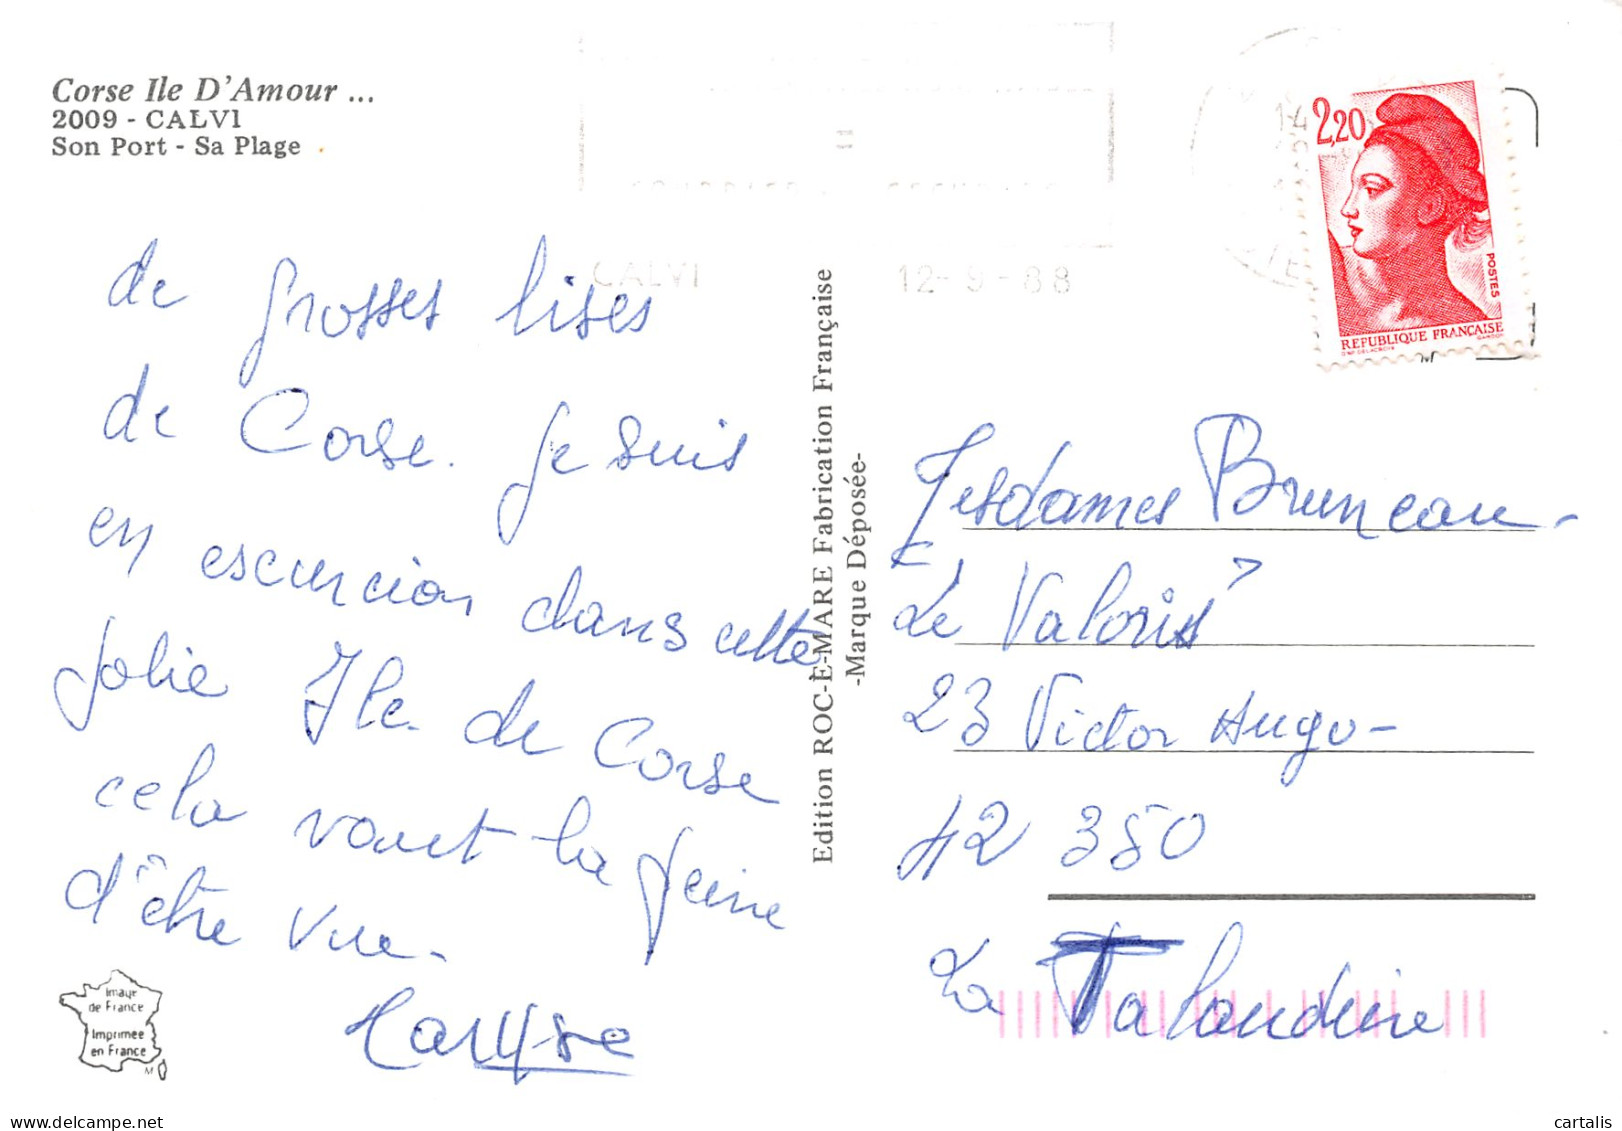 Corse Ile D'Amour ...
2009 - CALVI
Son Port - Sa Plage
CALVI
12-9-88
2,20
POSTES
REPUBLIQUE FRANÇAISE
de grosses bises
de Corse. Je suis
en escurcion dans cette
jolie Ile de Corse
cela vaut la peine
d'être vue.
Edition ROC-E-MARE Fabrication Française
-Marque Déposée-
Mesdames Bruneau
Le Valoris
23 Victor Hugo-
42 350
La Talaudière
Image
de France
Imprimee
en France
cartalis